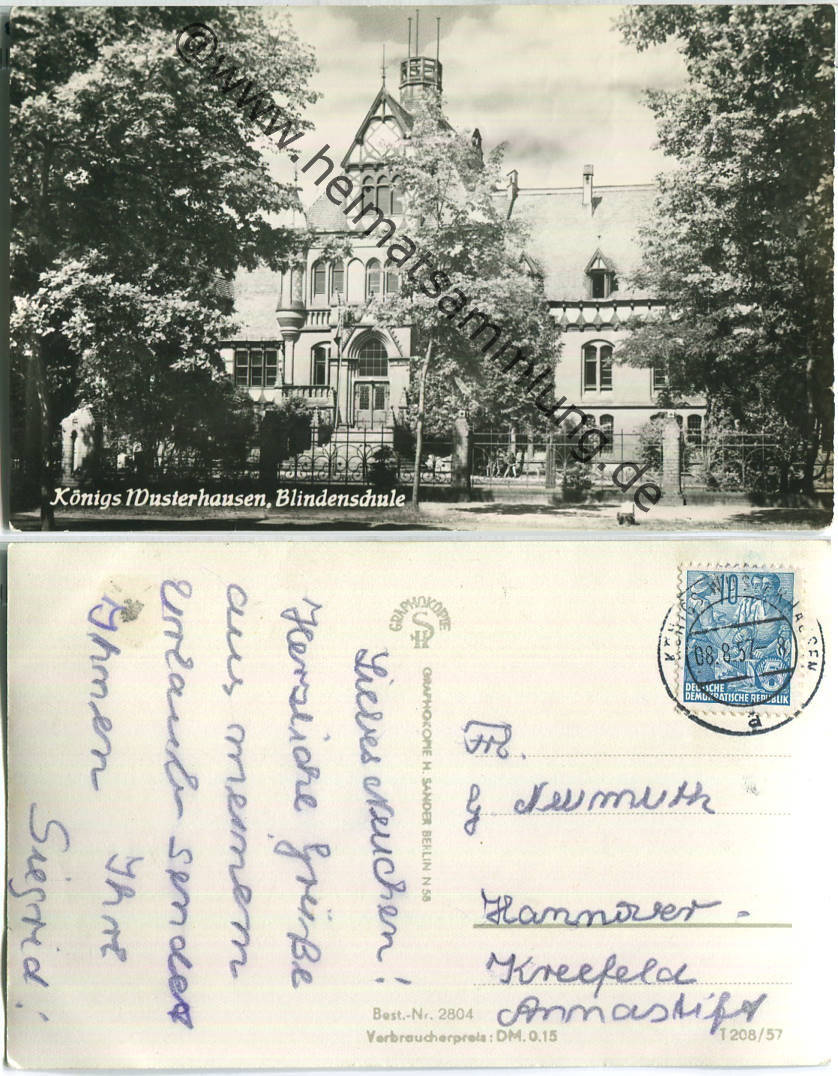 ©www.heimatsammlung.de
Königs Wusterhausen, Blindenschule
Liebes Neuchen!
Herzliche Grüße
aus meinem
Urlaub sendet
Ihnen Ihre
Sigrid!
GRAPHOKOPIE
GRAPHOKOPIE H. SANDER BERLIN N 58
10
DEUTSCHE
DEMOKRATISCHE REPUBLIK
KÖNIGS WUSTERHAUSEN
08.8.57
a
Frl.
Neumuth
Hannover-
Kleefeld
Annastift
Best.-Nr. 2804
Verbraucherpreis: DM. 0.15
T 208/57